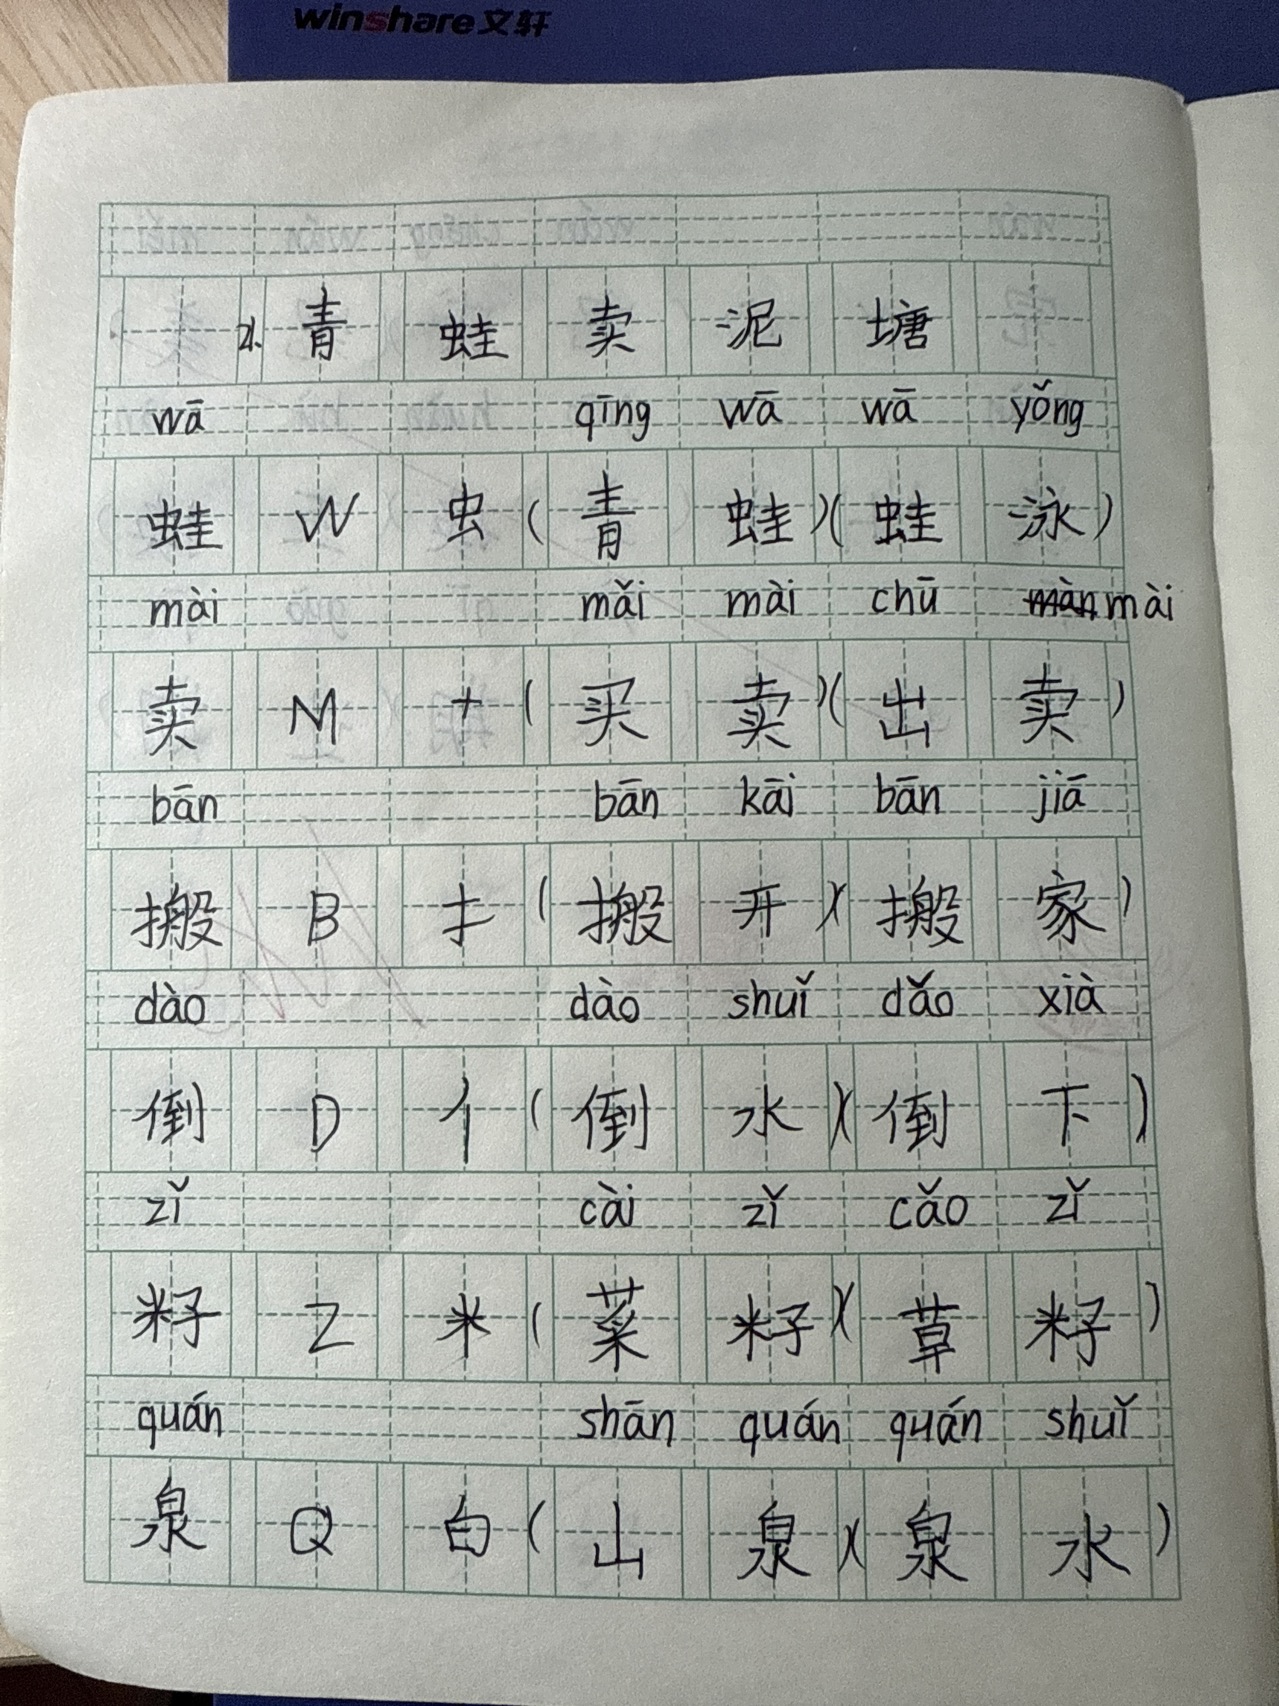 winshare文轩
21.青蛙卖泥塘
wā qīng wā wā yǒng
蛙 W 虫(青蛙)(蛙泳)
mài mǎi mài chū mài
卖 M 十(买卖)(出卖)
bān bān kāi bān jiā
搬 B 扌(搬开)(搬家)
dào dào shuǐ dǎo xià
倒 D 亻(倒水)(倒下)
zǐ cài zǐ cǎo zǐ
籽 Z 米(菜籽)(草籽)
quán shān quán quán shuǐ
泉 Q 白(山泉)(泉水)